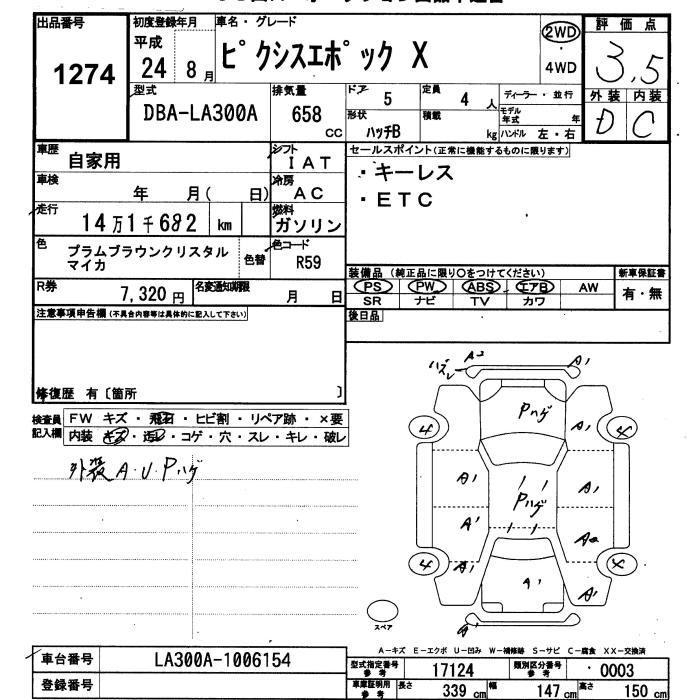 出品番号
1274
初度登録年月
平成
24 8月
車名・グレード
ピクシスエポック X
2WD
4WD
評価点
3,5
外装 内装
D C
型式
DBA-LA300A
排気量
658
CC
ドア
5
定員
4 人
形状
ハッチB
積載
kg
ディーラー・並行
モデル年式 年
ハンドル 左・右
車歴
自家用
シフト
IAT
車検
年 月( 日)
冷房
AC
走行
14万1千682 km
燃料
ガソリン
色
プラムブラウンクリスタル
マイカ
色替
色コード
R59
R券
7,320円
名変通知期限
月 日
セールスポイント(正常に機能するものに限ります)
・キーレス
・ETC
装備品(純正品に限り○をつけてください)
PS PW ABS エアB AW
SR ナビ TV カワ
新車保証書
有・無
後日品
注意事項申告欄(不具合内容等は具体的に記入して下さい)
修復歴 有〔箇所 〕
検査員
記入欄
FW キズ・飛石・ヒビ割・リペア跡・×要
内装 キズ・汚レ・コゲ・穴・スレ・キレ・破レ
外装 A・U・Pハゲ
ハズレ A2 A1
Pハゲ
4 A1 4
A1 Pハゲ A1
A1 A2
4 A1 A1 A1
A1
スペア
A-キズ E-エクボ U-凹み W-補修跡 S-サビ C-腐食 XX-交換済
車台番号
LA300A-1006154
登録番号
型式指定番号
参考
17124
類別区分番号
参考
0003
車庫証明用
参考
長さ
339 cm
幅
147 cm
高さ
150 cm